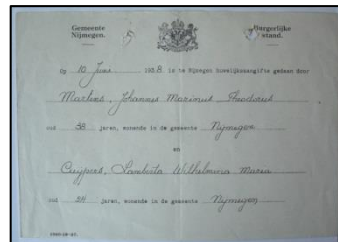 Gemeente Nijmegen.
Burgerlijke stand.
Op 10 Juni 1938 is te Nijmegen huwelijksaangifte gedaan door
Martens, Johannes Marinus Theodorus
oud 38 jaren, wonende in de gemeente Nijmegen
en
Cuypers, Lamberta Wilhelmina Maria
oud 28 jaren, wonende in de gemeente Nijmegen